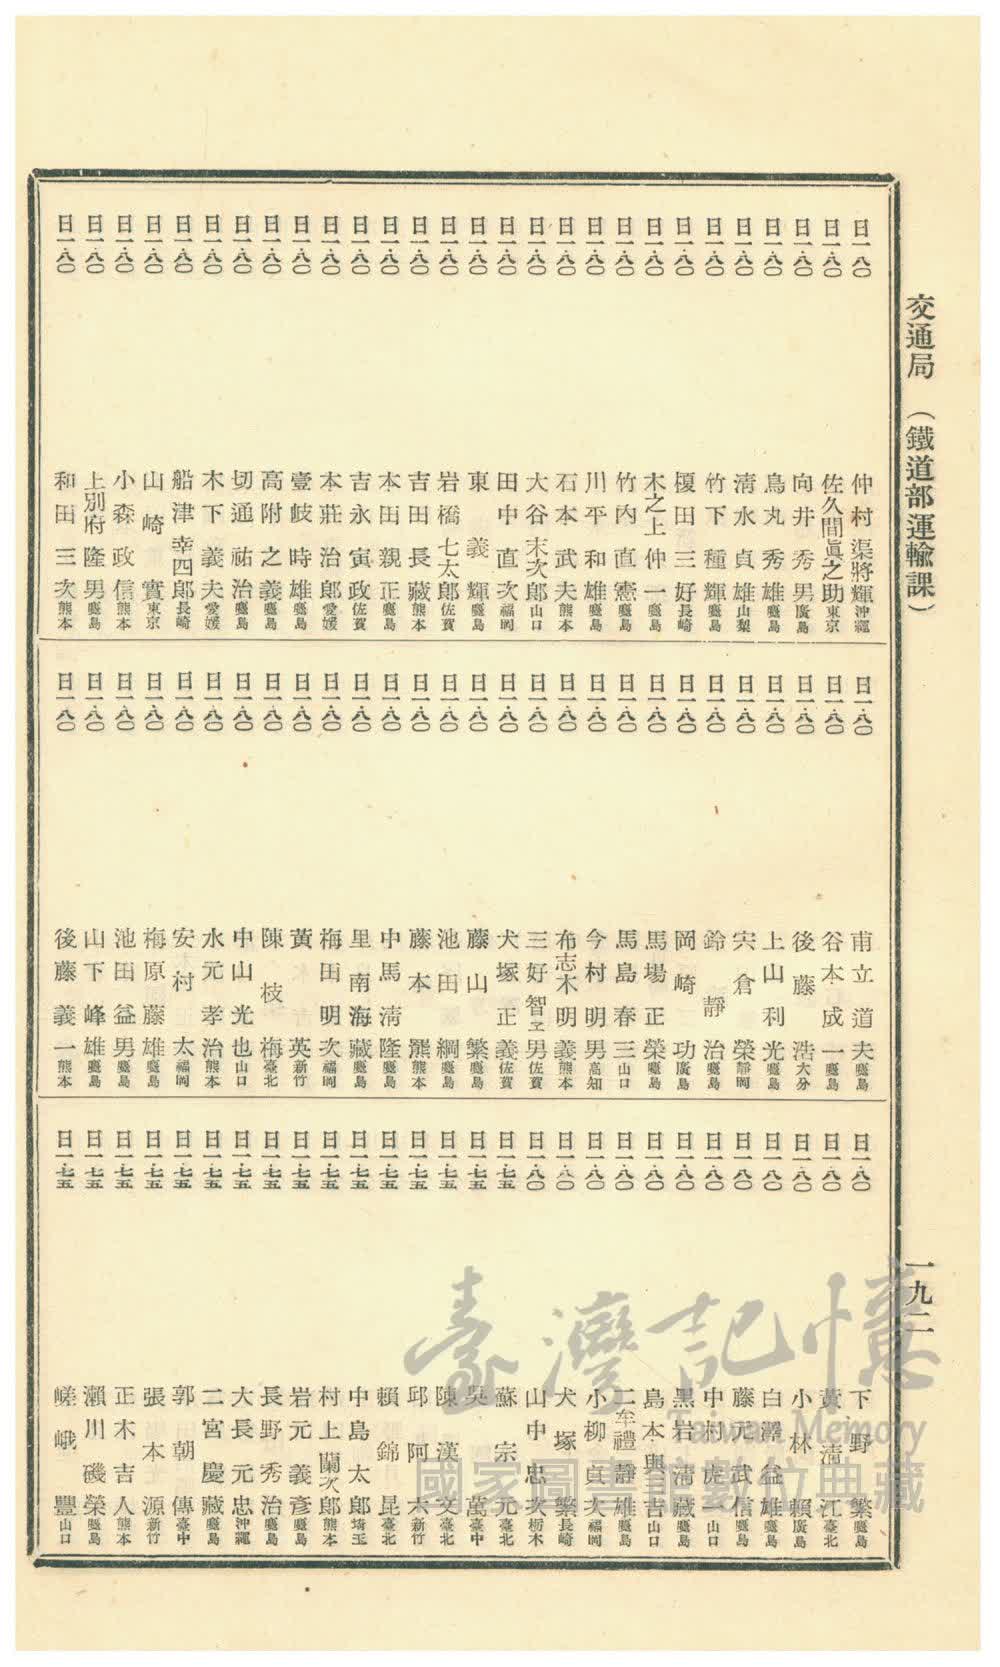 交通局　（鐵道部運輸課）
一九二
日一・八〇　仲村渠將輝　沖繩
日一・八〇　佐久間眞之助　東京
日一・八〇　向井秀男　廣島
日一・八〇　鳥丸秀雄　鹿島
日一・八〇　清水貞雄　山梨
日一・八〇　竹下種輝　鹿島
日一・八〇　榎田三好　長崎
日一・八〇　木之上仲一　鹿島
日一・八〇　竹内直憲　鹿島
日一・八〇　川平和雄　鹿島
日一・八〇　石本武夫　熊本
日一・八〇　大谷末次郎　山口
日一・八〇　田中直次　福岡
日一・八〇　東義輝　鹿島
日一・八〇　岩橋七太郎　佐賀
日一・八〇　吉田長藏　熊本
日一・八〇　本田親正　鹿島
日一・八〇　吉永寅政　佐賀
日一・八〇　本莊治郎　愛媛
日一・八〇　壹岐時雄　鹿島
日一・八〇　高附之義　鹿島
日一・八〇　切通祐治　鹿島
日一・八〇　木下義夫　愛媛
日一・八〇　船津幸四郎　長崎
日一・八〇　山崎實　東京
日一・八〇　小森政信　熊本
日一・八〇　上別府隆男　鹿島
日一・八〇　和田三次　熊本
日一・八〇　甫立道夫　鹿島
日一・八〇　谷本成一　鹿島
日一・八〇　後藤浩　大分
日一・八〇　上山利光　鹿島
日一・八〇　宍倉榮　靜岡
日一・八〇　鈴靜治　鹿島
日一・八〇　岡崎功　廣島
日一・八〇　馬場正榮　鹿島
日一・八〇　馬島春三　山口
日一・八〇　今村明男　高知
日一・八〇　布志木明義　熊本
日一・八〇　三好智ヱ男　佐賀
日一・八〇　犬塚正義　佐賀
日一・八〇　藤山繁　鹿島
日一・八〇　池田綱　鹿島
日一・八〇　藤本羆　熊本
日一・八〇　中馬淸隆　鹿島
日一・八〇　里南海藏　鹿島
日一・八〇　梅田明次　福岡
日一・八〇　黃英　新竹
日一・八〇　陳枝梅　臺北
日一・八〇　中山光也　山口
日一・八〇　水元孝治　熊本
日一・八〇　安村太　福岡
日一・八〇　梅原藤雄　鹿島
日一・八〇　池田益男　鹿島
日一・八〇　山下峰雄　鹿島
日一・八〇　後藤義一　熊本
日一・八〇　下野繁　鹿島
日一・八〇　黃淸江　臺北
日一・八〇　小林賴　廣島
日一・八〇　白澤益雄　鹿島
日一・八〇　藤元武信　鹿島
日一・八〇　中村虎一　山口
日一・八〇　黑岩淸藏　鹿島
日一・八〇　島本與吉　山口
日一・八〇　二牟禮靜雄　鹿島
日一・八〇　小柳貞次　福岡
日一・八〇　犬塚繁　長崎
日一・八〇　山中忠次　栃木
日一・七五　蘇宗元　臺北
日一・七五　吳萬　臺中
日一・七五　陳漢文　臺北
日一・七五　邱阿六　新竹
日一・七五　賴錦昆　臺北
日一・七五　中島太郎　埼玉
日一・七五　村上蘭次郎　熊本
日一・七五　岩元義彥　鹿島
日一・七五　長野秀治　鹿島
日一・七五　大長元忠　沖繩
日一・七五　二宮慶藏　鹿島
日一・七五　郭朝傳　臺中
日一・七五　張本源　新竹
日一・七五　正木吉人　熊本
日一・七五　瀨川磯榮　鹿島
日一・七五　嵯峨豐　山口
臺灣記憶
Taiwan Memory
國家圖書館數位典藏